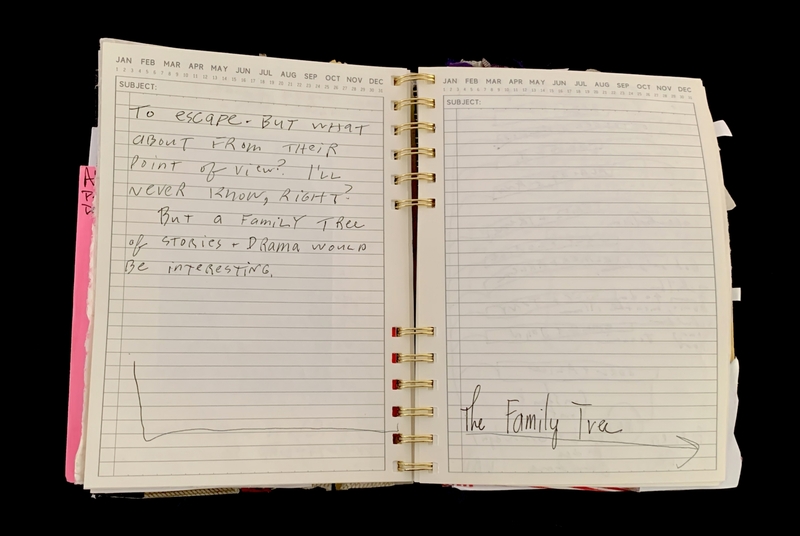 JAN FEB MAR APR MAY JUN JUL AUG SEP OCT NOV DEC
1 2 3 4 5 6 7 8 9 10 11 12 13 14 15 16 17 18 19 20 21 22 23 24 25 26 27 28 29 30 31
SUBJECT:
To escape. But what
about from their
point of view? I'll
never know, right?
But a family tree
of stories + drama would
be interesting.
JAN FEB MAR APR MAY JUN JUL AUG SEP OCT NOV DEC
1 2 3 4 5 6 7 8 9 10 11 12 13 14 15 16 17 18 19 20 21 22 23 24 25 26 27 28 29 30 31
SUBJECT:
The Family Tree